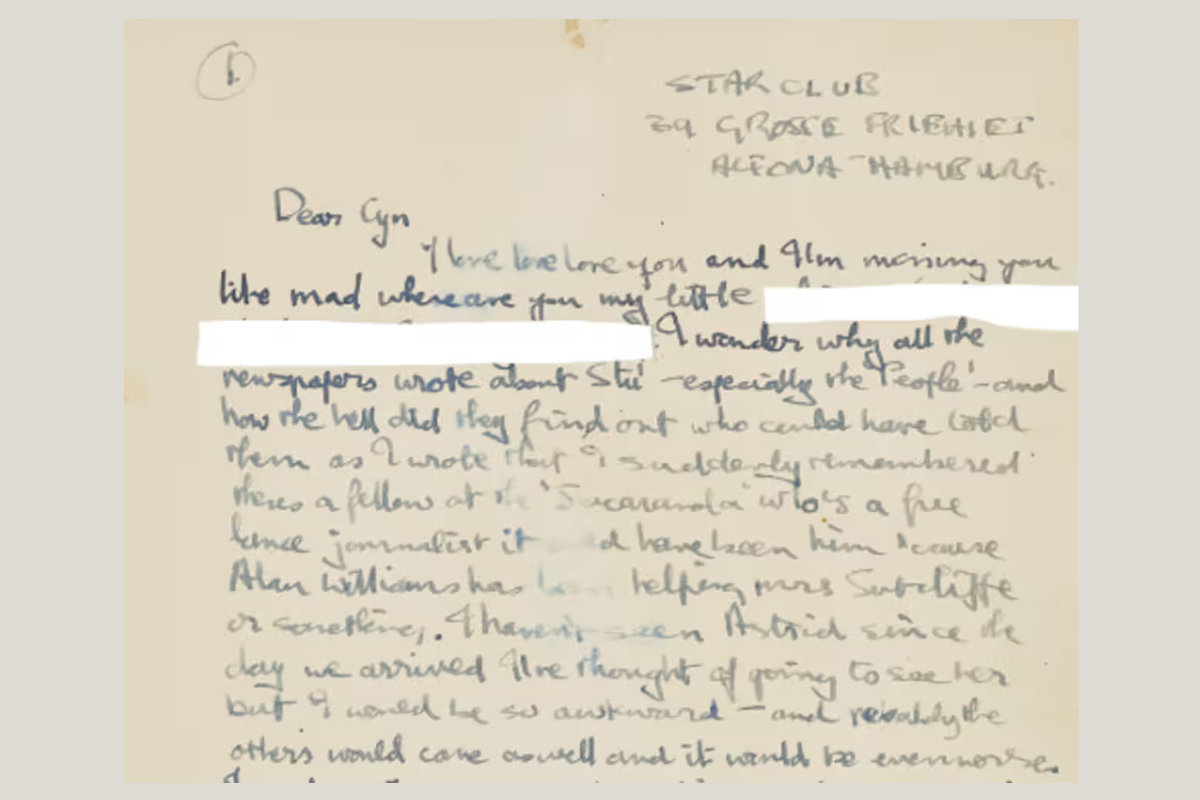 1.
STAR CLUB
39 GROSSE FRIEHIET
ALTONA - HAMBURG.
Dear Cyn
I love love love you and I'm missing you
like mad where are you my little
I wonder why all the
newspapers wrote about Stu' - especially the 'People' - and
how the hell did they find out who could have told
them as I wrote that I suddenly remembered
theres a fellow at the 'Jacaranda' who's a free
lance journalist it d have been him 'cause
Alan Williams has helping mrs Sutcliffe
or something. I haven't seen Astrid since the
day we arrived I've thought of going to see her
but I would be so awkward - and probably the
others would come as well and it would be even worse.